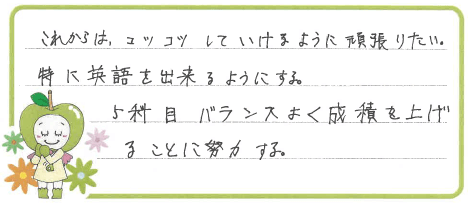 これからは、コツコツしていけるように頑張りたい。
特に英語を出来るようにする。
5科目バランスよく成績を上げ
ることに努力する。